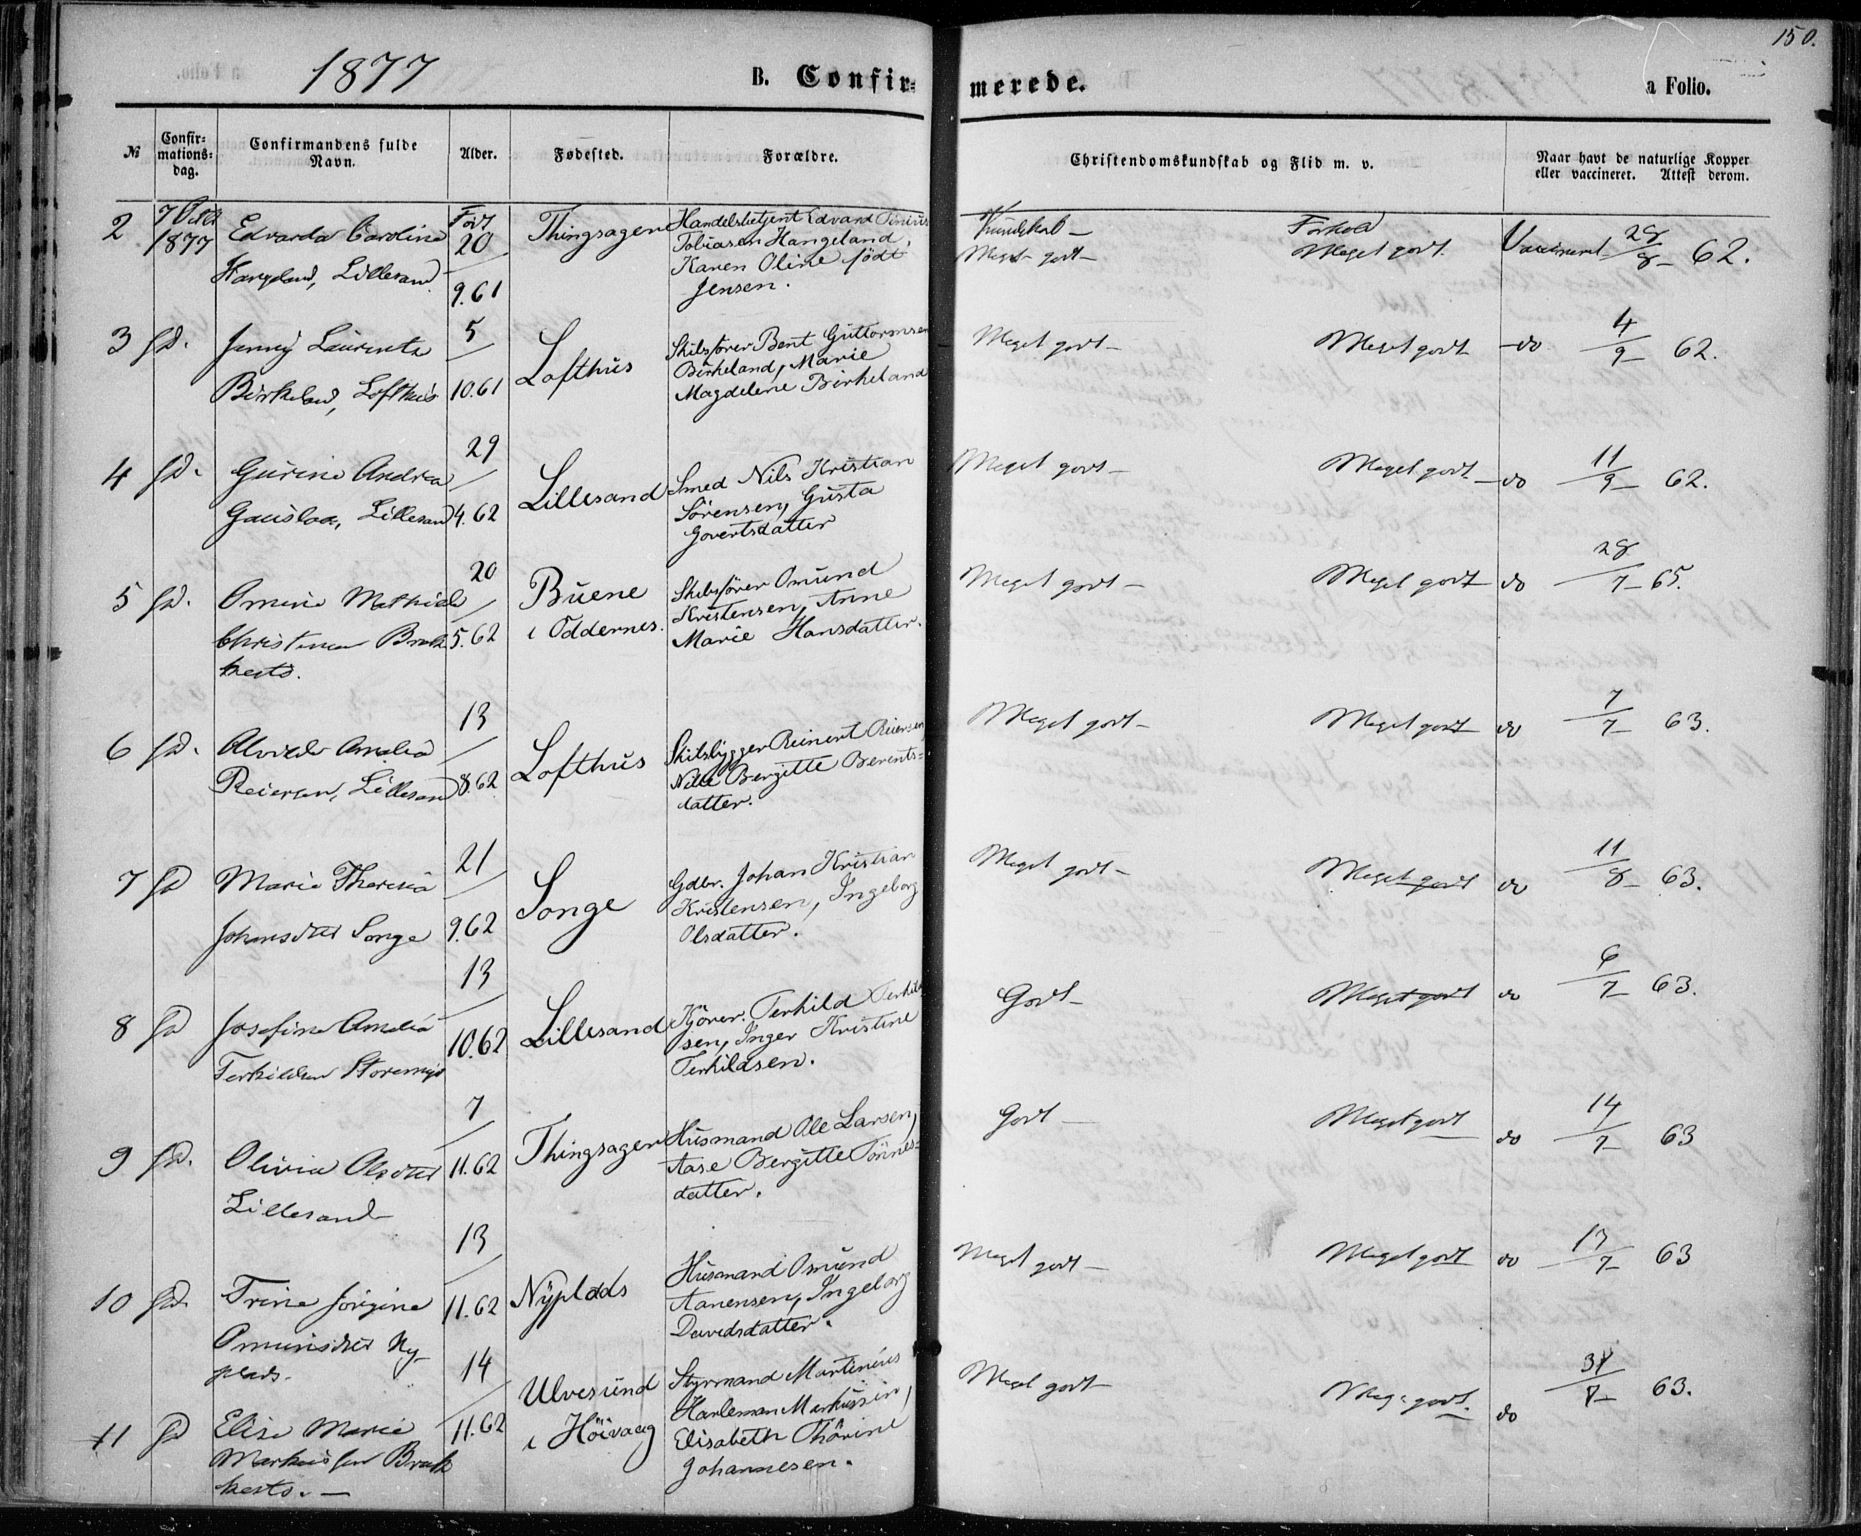 150.
1877
B. Confirmerede.
a Folio.
№
Confirmations-dag.
Confirmandens fulde Navn.
Alder.
Fødested.
Forældre.
Christendomskundskab og Flid m. v.
Naar havt de naturlige Kopper eller vaccineret. Attest derom.
2 7 Octbr 1877 Edvarda Caroline Født 20 Thingsager Handelsbetjent Edvard Tinius Kundskab – Forhold Vaccineret 28/8 – 62.
Hangeland, Lillesand 9.61 Tobiasen Hangeland, Meget godt – Meget godt.
Karen Oline født
Jensen.
3 sd. Jenny Laurenta 5/10.61 Lofthus Skibsfører Bent Guttormsen Meget godt – Meget godt – do 4/9 – 62.
Birkeland, Lofthus Birkeland, Marie
Magdelene Birkeland
4 sd. Gurine Andrea 29/4.62 Lillesand Smed Nils Kristian Meget godt – Meget godt – do 11/9 – 62.
Gauslaa, Lillesand Sörensen, Gusta
Govertsdatter
5 sd. Omine Mathilde 20/5.62 Buene Skibsförer Omund Meget godt – Meget godt do 28/7 – 65.
Christensen Brækkestø. i Oddernes. Kristensen, Anne
Marie Hansdatter.
6 sd. Alvilde Amalia 13/8.62 Lofthus Skibsbygger Reinert Reiersen Meget godt – Meget godt do 7/7 63.
Reiersen, Lillesand Nille Bergitte Berents-
datter.
7 sd Marie Theresia 21/9.62 Songe Gdbr. Johan Kristian Meget godt – Meget godt do 11/8 – 63.
Johansdtter Songe Kristensen, Ingeborg
Olsdatter.
8 sd Josefine Amalia 13/10.62 Lillesand Kjörer. Terkild Terkild Godt – Meget godt do 6/7 – 63.
Terkildsen Storemyr sen, Inger Kristine
Terkildsen.
9 sd. Olivia Olsdtter 7/11.62 Thingsager Husmand Ole Larsen, Godt – Meget godt do 14/7 – 63
Lillesand Aase Bergitte Tönnes-
datter.
10 sd. Trine Jörgine 13/11.62 Nÿplads Husmand Omund Meget godt – Meget godt do 13/7 – 63
Omundsdtter Ny- Aanensen, Ingeborg
plads. Davidsdatter.
11 sd Elise Marie 14/11.62 Ulvesund Styrmand Martinius Meget godt – Meget godt. do 63.
Markussen Brækkestø. – i Höivaag Harleman Markussen,
Elisabeth Thörine
Johannesen.